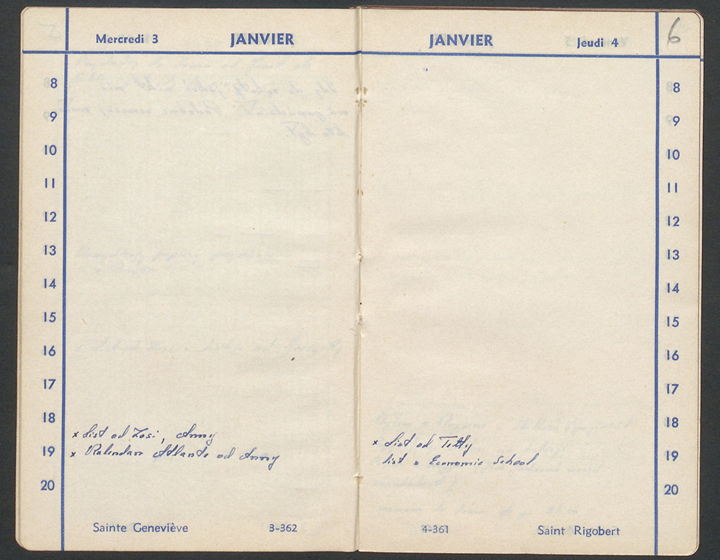 Mercredi 3 JANVIER
8
9
10
11
12
13
14
15
16
17
18
x List od Zosi, Anny
19
x Kalendarz Atlante od Anny
20
Sainte Geneviève 3-362
JANVIER Jeudi 4
6
8
9
10
11
12
13
14
15
16
17
18
x List od Tetty
19
list z Economic School
20
4-361 Saint Rigobert